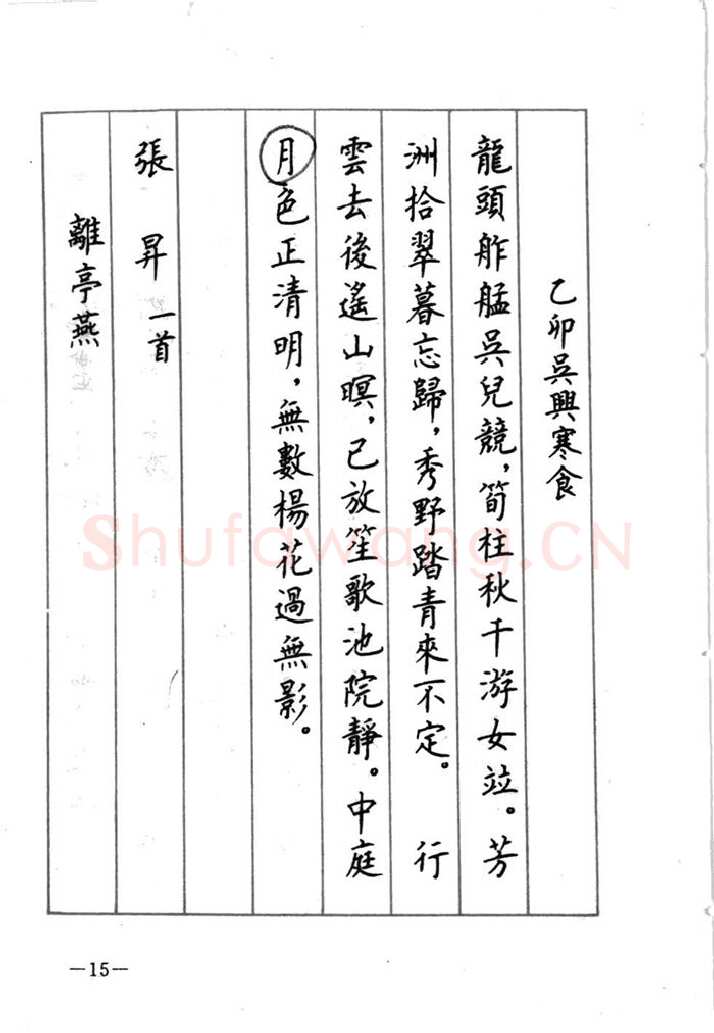 乙卯吳興寒食
龍頭舴艋吳兒競，筍柱秋千游女竝。芳
洲拾翠暮忘歸，秀野踏青來不定。　行
雲去後遙山暝，已放笙歌池院靜。中庭
月色正清明，無數楊花過無影。
張　昇 一首
離亭燕
Shufawang.CN
—15—